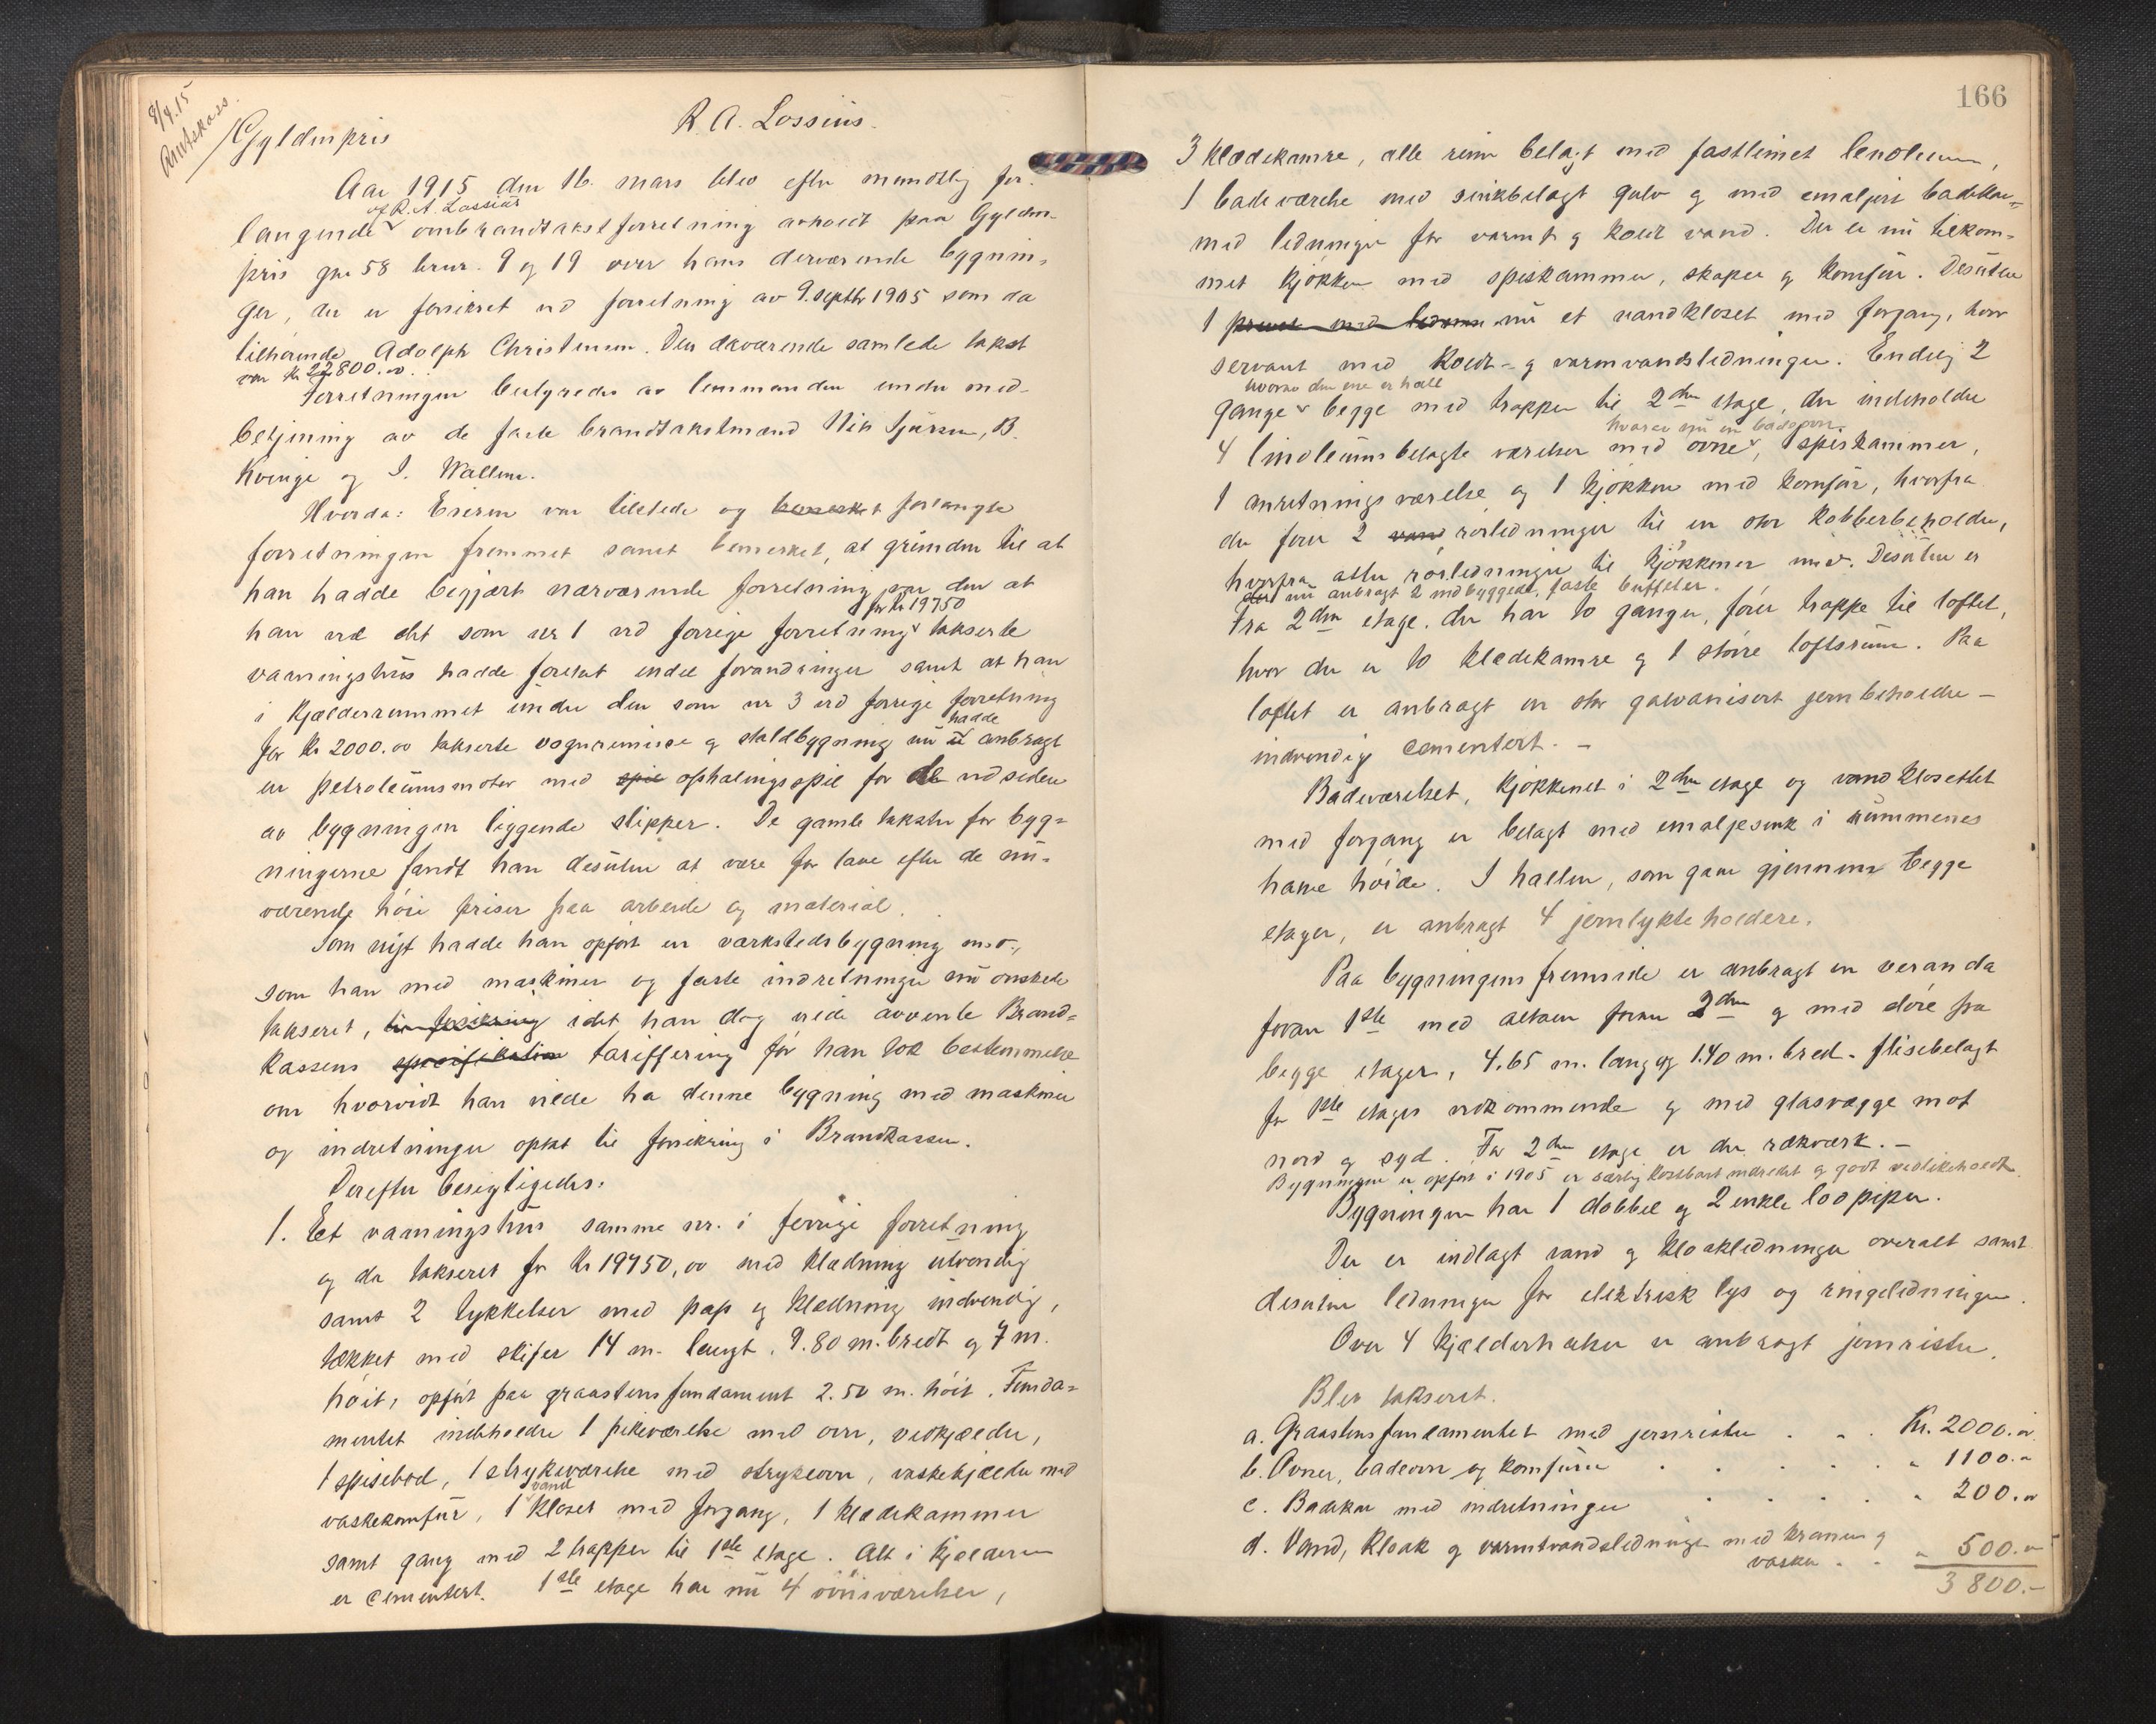 8/4.15
Amtskas.
Gyldenpris
R. A. Lossius.
Aar 1915 den 16. mars blev efter mundtlig for-
av R. A. Lossius
langende ombrandtakstforretning avholdt paa Gylden-
pris gnr 58 brnr. 9 og 19 over hans derværende bygnin-
ger, der er forsikret ved forretning av 9. septbr 1905 som da
tilhørende Adolph Christensen. Den daværende samlede takst
var kr 22800.00.
Forretningen bestyredes av lensmanden under med-
betjening av de faste brandtakstmænd Nils Sjursen, B.
Kvinge og I. Wallem.
Hvorda: Eieren var tilstede og bemerket forlangte
forretningen fremmet samt bemerket, at grunden til at
han hadde begjært nærværende forretning var den at
for kr 19750
han ved det som nr 1 ved forrige forretning takserte
vaaningshus hadde foretat endel forandringer samt at han
i kjælderrummet under den som nr 3 ved forrige forretning
hadde
for kr 2000.00 takserte vognremisse og staldbygning nu er anbragt
en petroleumsmotor med spil ophalingsspil for de ved siden
av bygningen liggende slipper. De gamle takster for byg-
ningerne fandt han desuten at være for lave efter de nu-
værende høie priser paa arbeide og material.
Som nyt hadde han opført en verkstedsbygning m.v.,
som han med maskiner og faste indretninger nu ønskede
taksert, til forsikring idet han dog vilde avvente Brand-
kassens specifikation tariffering før han tok bestemmelse
om hvorvidt han vilde ha denne bygning med maskiner
og indretninger optat til forsikring i Brandkassen.
Derefter besigtigedes:
1. Et vaaningshus samme nr. i forrige forretning
og da taksert for kr 19750,00 med klædning utvendig
samt 2 tykkelser med pap og klædning indvendig,
tækket med skifer 14 m. langt, 9.80 m. bredt og 7 m.
høit, opført paa graastensfundament 2.50 m. høit. Funda-
mentet indeholder 1 pikeværelse med ovn, vedkjelder,
1 spisebod, 1 strykeværelse med strykeovn, vaskekjelder med
vand
vaskekomfur, 1 kloset med forgang, 1 klædekammer
samt gang med 2 trapper til 1ste etage. Alt i kjælderen
er cementert. 1ste etage har nu 4 ovnsværelser,
166
3 klædekamre, alle rum belagt med fastlimet linoleum,
1 badeværelse med sinkbelagt gulv og med emaljert badekar
med ledninger for varmt og koldt vand. Der er nu tilkom-
met kjøkken med spiskammer, skaper og komfur. Desuten
1 privet med ledning nu et vandkloset med forgang, hvor
servant med koldt- og varmvandsledninger. Endelig 2
hvorav den ene er hall
gange begge med trapper til 2den etage, der indeholder
hvorav nu en badeovn
4 linoleumsbelagte værelser med ovne, 1 spiskammer,
1 anretningsværelse og 1 kjøkken med komfur, hvorfra
der fører 2 vand rørledninger til en stor kobberbeholder,
hvorfra atter rørledninger til kjøkkener m.v. Desuten er
der nu anbragt 2 indbyggede, faste buffeter.
Fra 2den etage, der har to ganger, fører trappe til loftet,
hvor der er to klædekamre og 1 større loftsrum. Paa
loftet er anbragt en stor galvanisert jernbeholder -
indvendig cementert. -
Badeværelset, kjøkkenet i 2den etage og vandklosettet
med forgang er belagt med emaljesink i rummenes
halve høide. I hallen, som gaar gjennem begge
etager, er anbragt 4 jernlykteholdere.
Paa bygningens fremside er anbragt en veranda
foran 1ste med altan foran 2den og med døre fra
begge etager, 4.65 m. lang og 1.40 m. bred - flisebelagt
for 1ste etages vedkommende og med glasvægge mot
nord og syd. For 2den etage er der rækværk. -
Bygningen er opført i 1905 er særlig kostbart indredet og godt vedlikeholdt.
Bygningen har 1 dobbel og 2 enkle loopiper.
Der er indlagt vand og kloakledninger overalt samt
desuten ledninger for elektrisk lys og ringeledninger.
Over 4 kjælderhalser er anbragt jernrister.
Blev taksert.
a. Graastensfundamentet med jernrister . . . Kr. 2000.00
b. Ovner, badeovn og komfurer . . . . . " 1100.00
c. Badekar med indretninger . . . . . " 200.00
d. Vand, kloak og varmtvandsledninger med kraner og
vasker . . " 500.00
3800.-